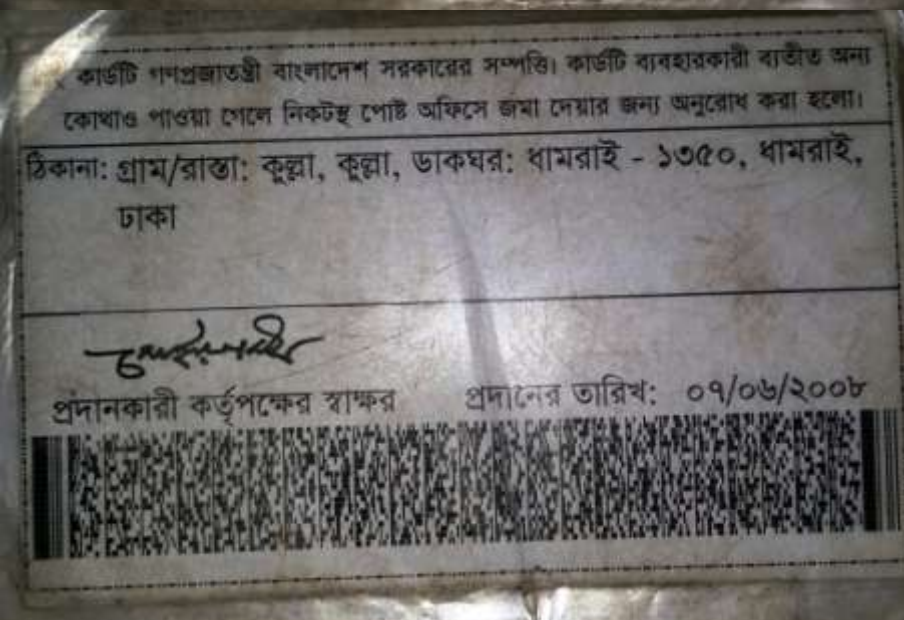 কার্ডটি গণপ্রজাতন্ত্রী বাংলাদেশ সরকারের সম্পত্তি। কার্ডটি ব্যবহারকারী ব্যতীত অন্য
কোথাও পাওয়া গেলে নিকটস্থ পোষ্ট অফিসে জমা দেয়ার জন্য অনুরোধ করা হলো।
ঠিকানা: গ্রাম/রাস্তা: কুল্লা, কুল্লা, ডাকঘর: ধামরাই - ১৩৫০, ধামরাই,
ঢাকা
প্রদানকারী কর্তৃপক্ষের স্বাক্ষর প্রদানের তারিখ: ০৭/০৬/২০০৮